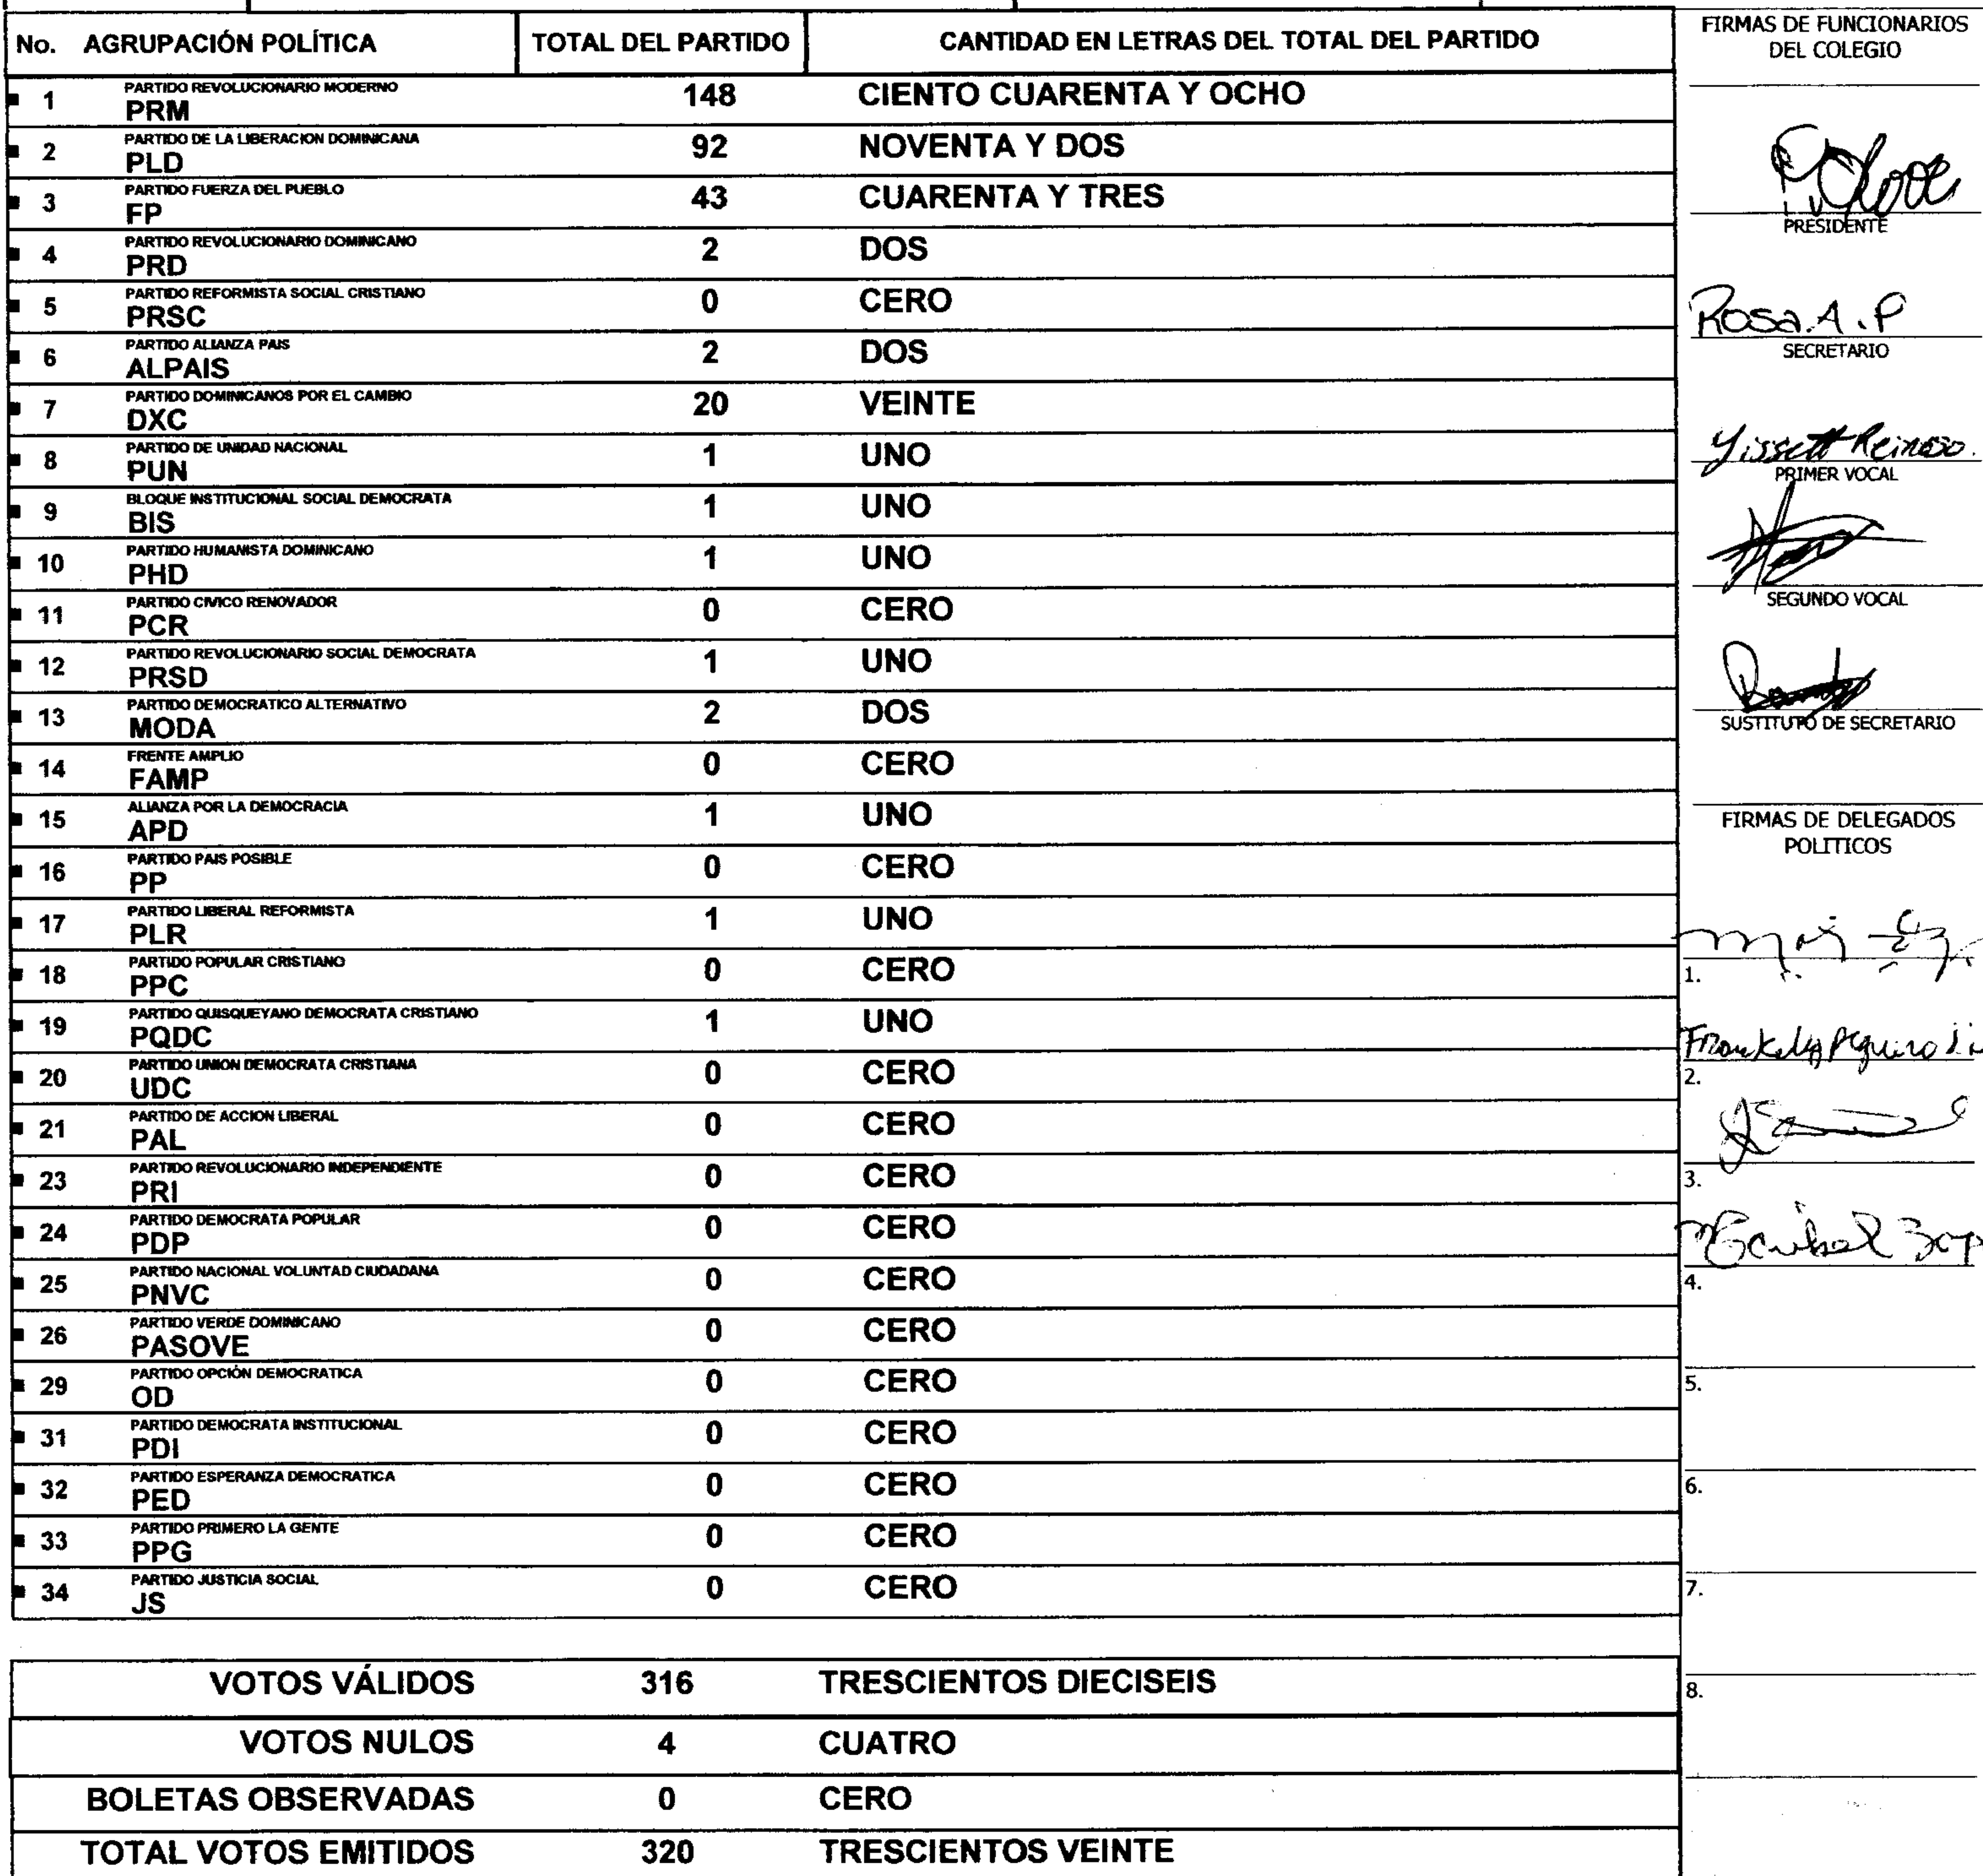 No. AGRUPACIÓN POLÍTICA TOTAL DEL PARTIDO CANTIDAD EN LETRAS DEL TOTAL DEL PARTIDO
PARTIDO REVOLUCIONARIO MODERNO
1 PRM 148 CIENTO CUARENTA Y OCHO
PARTIDO DE LA LIBERACION DOMINICANA
2 PLD 92 NOVENTA Y DOS
PARTIDO FUERZA DEL PUEBLO
3 FP 43 CUARENTA Y TRES
PARTIDO REVOLUCIONARIO DOMINICANO
4 PRD 2 DOS
PARTIDO REFORMISTA SOCIAL CRISTIANO
5 PRSC 0 CERO
PARTIDO ALIANZA PAIS
6 ALPAIS 2 DOS
PARTIDO DOMINICANOS POR EL CAMBIO
7 DXC 20 VEINTE
PARTIDO DE UNIDAD NACIONAL
8 PUN 1 UNO
BLOQUE INSTITUCIONAL SOCIAL DEMOCRATA
9 BIS 1 UNO
PARTIDO HUMANISTA DOMINICANO
10 PHD 1 UNO
PARTIDO CIVICO RENOVADOR
11 PCR 0 CERO
PARTIDO REVOLUCIONARIO SOCIAL DEMOCRATA
12 PRSD 1 UNO
PARTIDO DEMOCRATICO ALTERNATIVO
13 MODA 2 DOS
FRENTE AMPLIO
14 FAMP 0 CERO
ALIANZA POR LA DEMOCRACIA
15 APD 1 UNO
PARTIDO PAIS POSIBLE
16 PP 0 CERO
PARTIDO LIBERAL REFORMISTA
17 PLR 1 UNO
PARTIDO POPULAR CRISTIANO
18 PPC 0 CERO
PARTIDO QUISQUEYANO DEMOCRATA CRISTIANO
19 PQDC 1 UNO
PARTIDO UNION DEMOCRATA CRISTIANA
20 UDC 0 CERO
PARTIDO DE ACCION LIBERAL
21 PAL 0 CERO
PARTIDO REVOLUCIONARIO INDEPENDIENTE
23 PRI 0 CERO
PARTIDO DEMOCRATA POPULAR
24 PDP 0 CERO
PARTIDO NACIONAL VOLUNTAD CIUDADANA
25 PNVC 0 CERO
PARTIDO VERDE DOMINICANO
26 PASOVE 0 CERO
PARTIDO OPCIÓN DEMOCRATICA
29 OD 0 CERO
PARTIDO DEMOCRATA INSTITUCIONAL
31 PDI 0 CERO
PARTIDO ESPERANZA DEMOCRATICA
32 PED 0 CERO
PARTIDO PRIMERO LA GENTE
33 PPG 0 CERO
PARTIDO JUSTICIA SOCIAL
34 JS 0 CERO
VOTOS VÁLIDOS 316 TRESCIENTOS DIECISEIS
VOTOS NULOS 4 CUATRO
BOLETAS OBSERVADAS 0 CERO
TOTAL VOTOS EMITIDOS 320 TRESCIENTOS VEINTE
FIRMAS DE FUNCIONARIOS
DEL COLEGIO
PRESIDENTE
Rosa. A. P
SECRETARIO
Yissett Reinoso.
PRIMER VOCAL
SEGUNDO VOCAL
SUSTITUTO DE SECRETARIO
FIRMAS DE DELEGADOS
POLITICOS
1.
2.
3.
4.
5.
6.
7.
8.